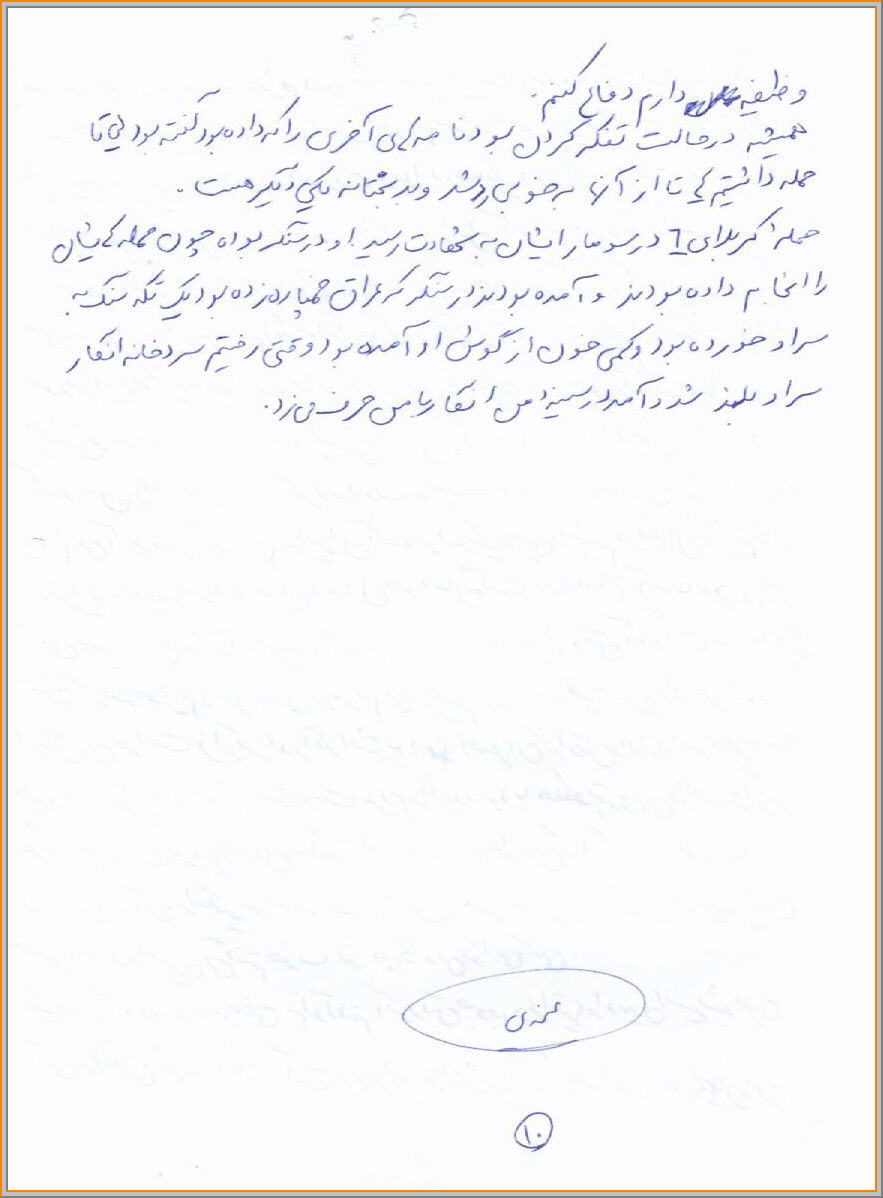 وظیفه دارم دفاع کنم.
همیشه در حالت تفکر کردن بود نامه های آخری را که داده بود گفته بود تا
حمله داشتیم که تا از آنها به خوبی رد شد و بدبختانه یکی دیگر هست.
حمله کربلای 6 در سومار ایشان به شهادت رسید او در سنگر بوده چون حمله شان
را انجام داده بودند و آمده بودند در سنگر که عراق خمپاره زده بود یک تکه سنگ به
سر او خورده بود و کمی خون از گوش او آمده بود وقتی رفتیم سردخانه انگار
سر او بلند شد و آمد در سینه من انگار با من حرف می زد.
۱۰